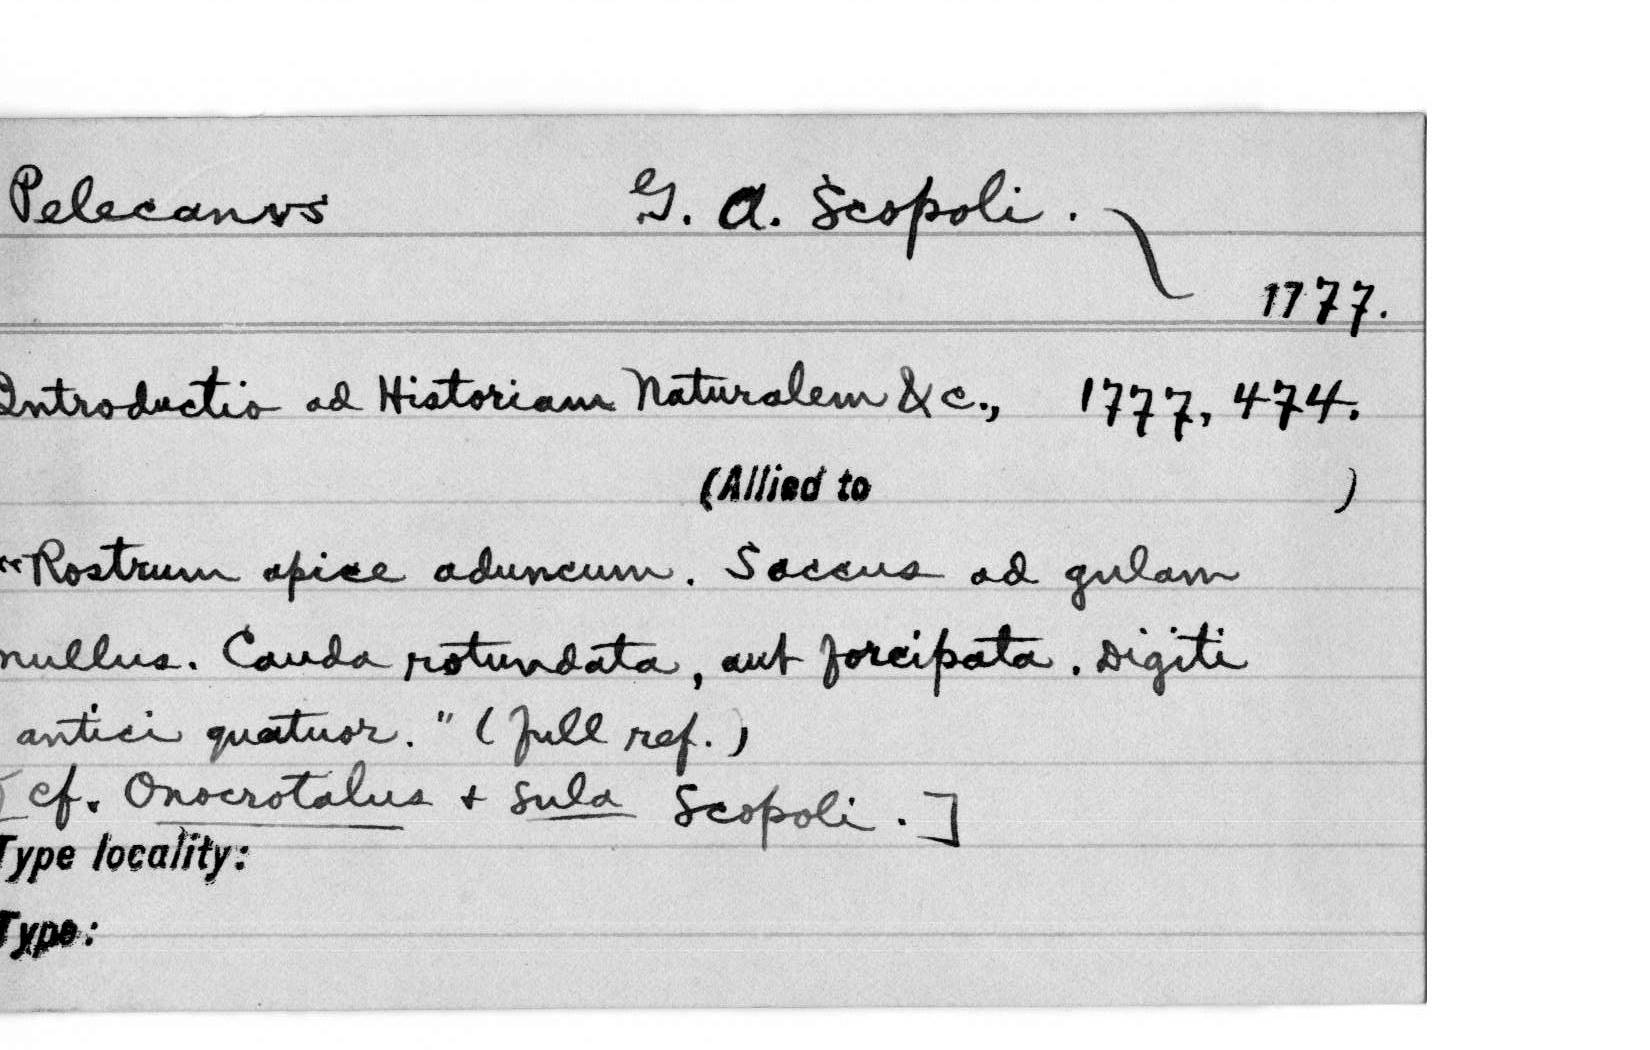 Pelecanus G. A. Scopoli.
1777.
Introductio ad Historiam Naturalem &c., 1777, 474.
(Allied to )
"Rostrum apice aduncum. Saccus ad gulam
nullus. Cauda rotundata, aut forcipata. Digiti
antici quatuor." (full ref.)
[cf. Onocrotalus + Sula Scopoli.]
Type locality:
Type: